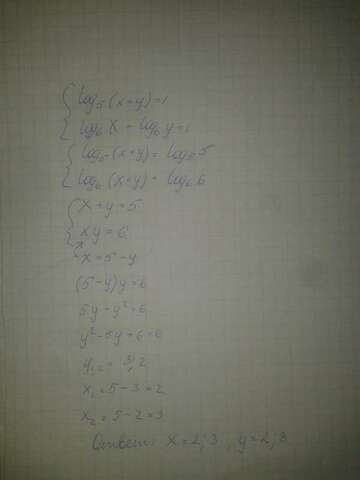 log₅(x+y)=1
log₆x + log₆y=1
log₅(x+y) = log₅5
log₆(x+y) = log₆6
x+y=5
xy=6
x=5-y
(5-y)y=6
5y-y²=6
y²-5y+6=0
y₁,₂= 3; 2
x₁=5-3=2
x₂=5-2=3
Ответ: x=2; 3, y=2, 3